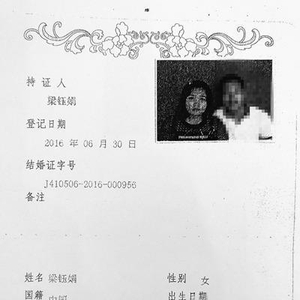 持证人
梁钰娟
登记日期
2016 年 06 月 30 日
结婚证字号
J410506-2016-000956
备注
姓名 梁钰娟 性别 女
国籍 中国 出生日期